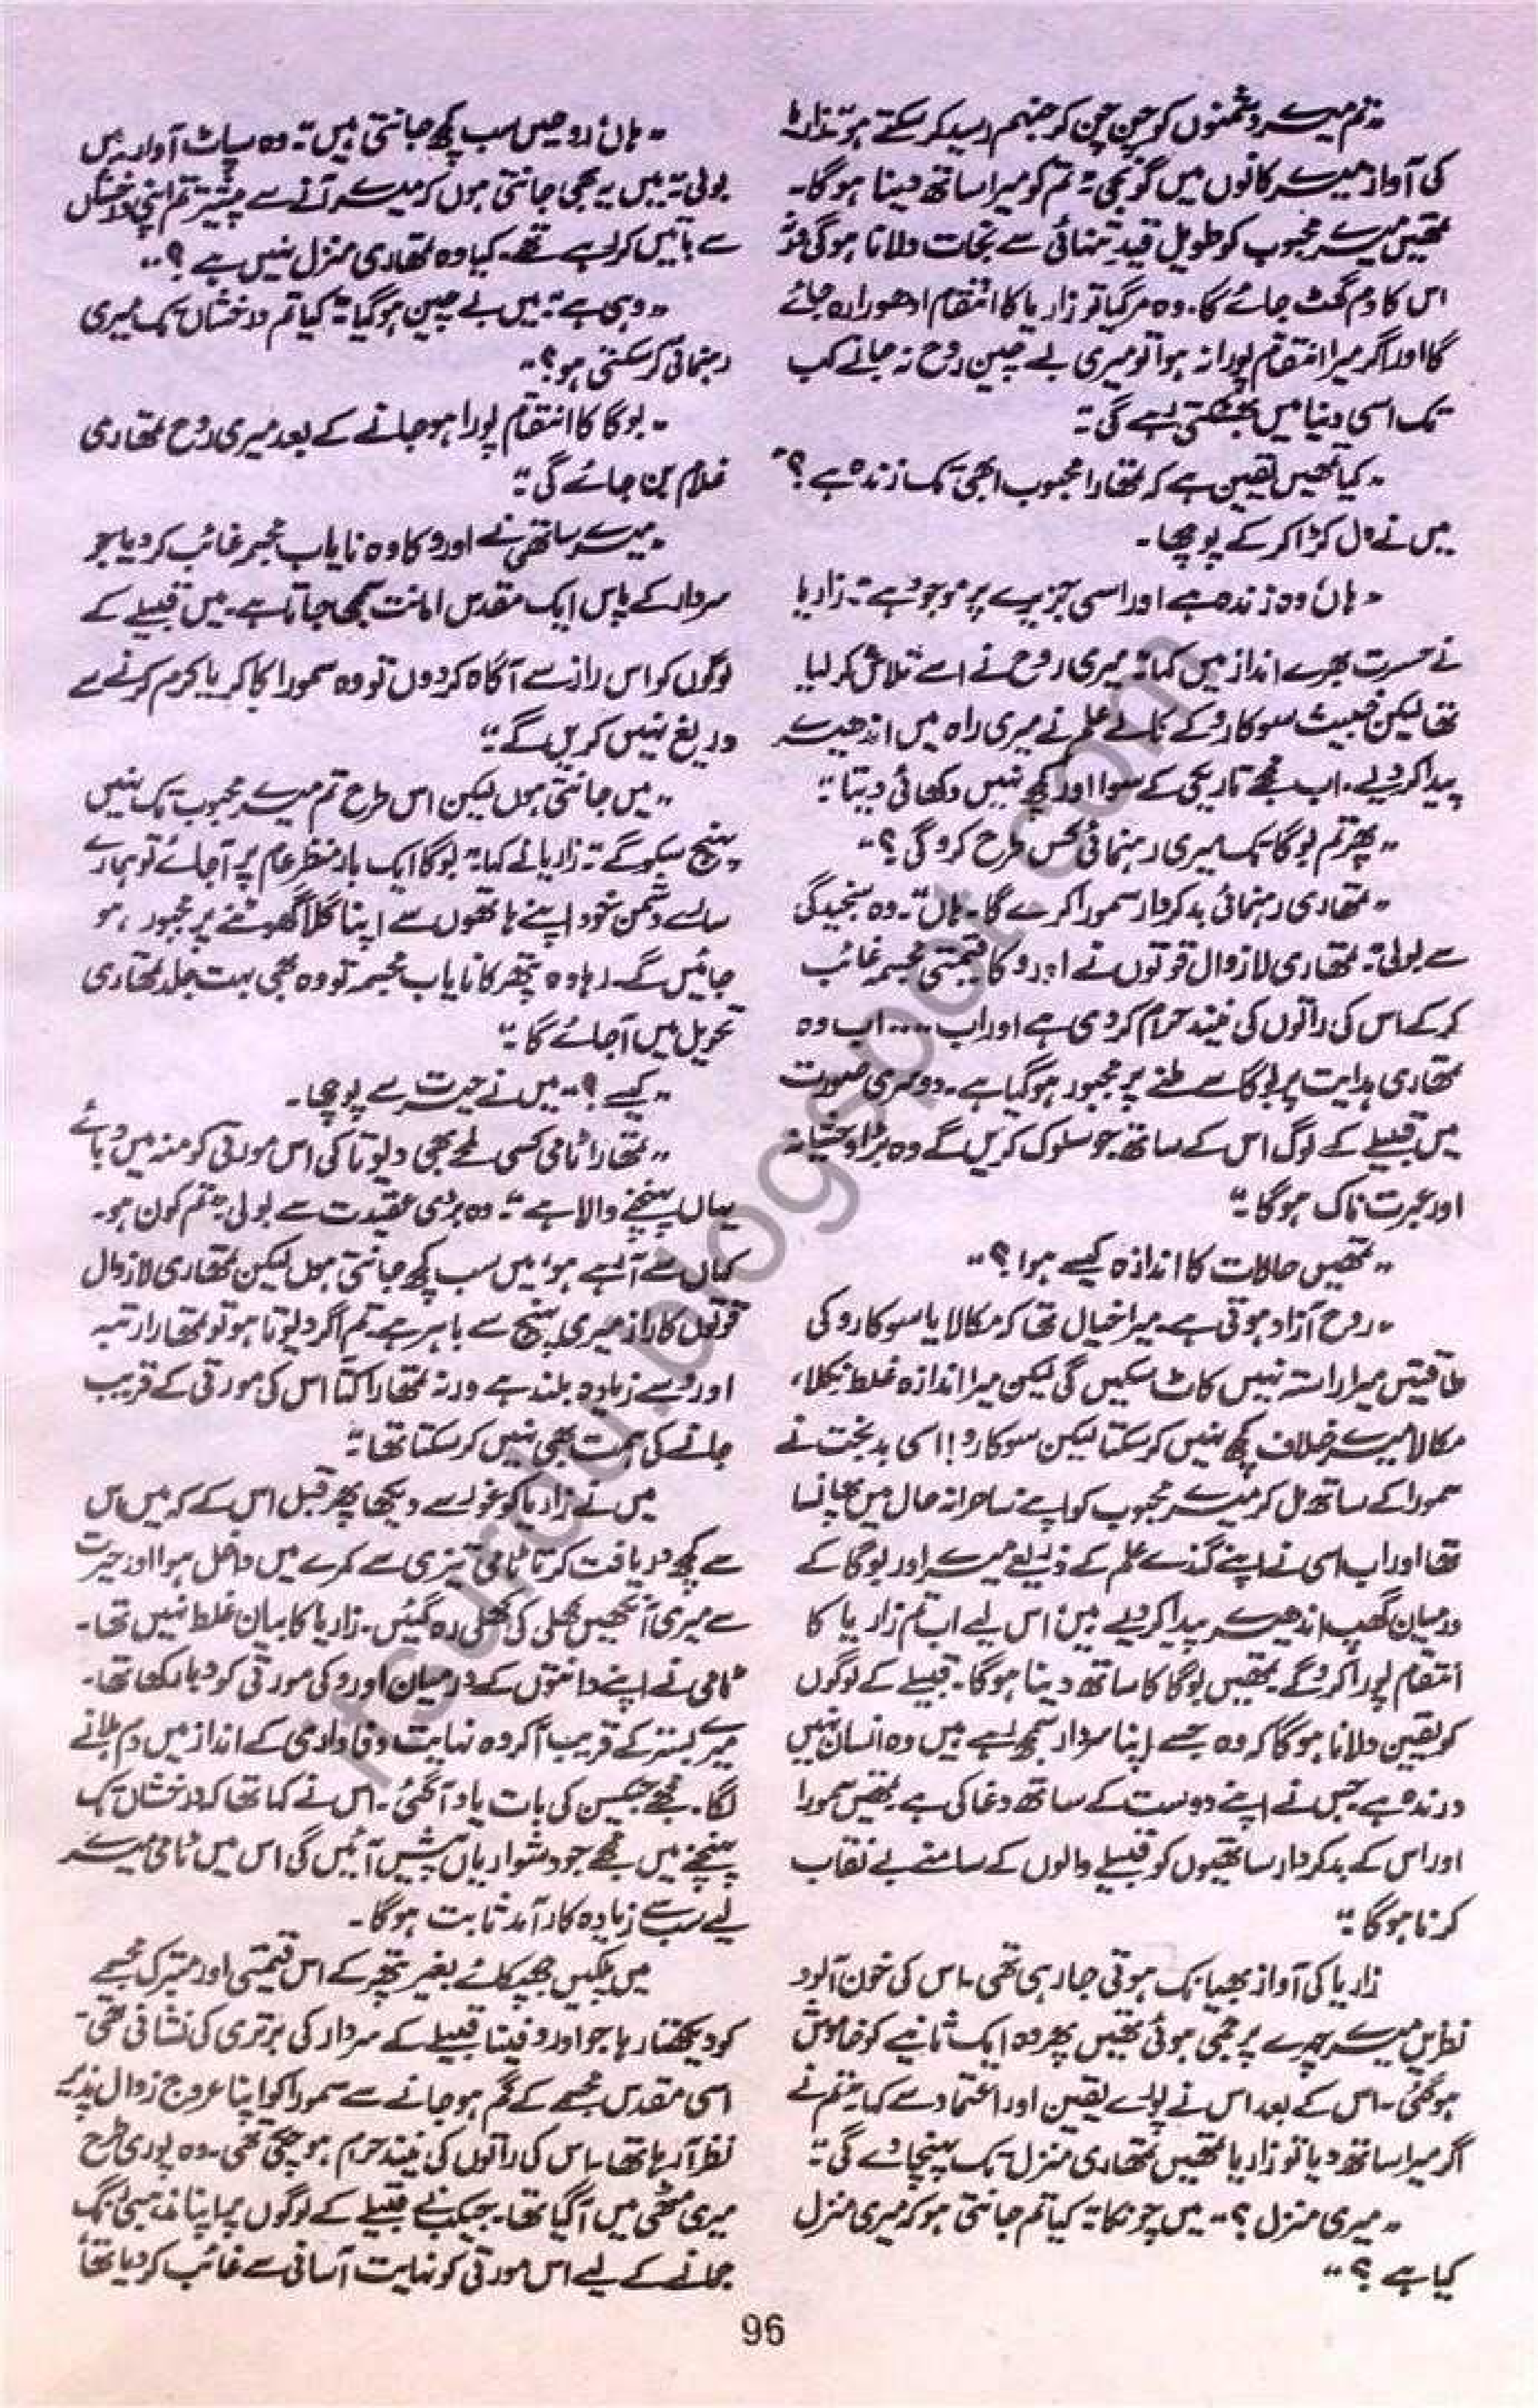 ”تم میرے دشمنوں کو چن چن کر جہنم رسید کر سکتے ہو“ زاریا
کی آواز میرے کانوں میں گونجی ”تم کو میرا ساتھ دینا ہوگا۔
تمھیں میرے محبوب کو طویل قیدِ تنہائی سے نجات دلانا ہوگی ورنہ
اس کا دم گھٹ جائے گا۔ وہ مر گیا تو زاریا کا انتقام ادھورا رہ جائے
گا اور اگر میرا انتقام پورا نہ ہوا تو میری بے چین روح نہ جانے کب
تک اسی دنیا میں بھٹکتی رہے گی“
”کیا تمھیں یقین ہے کہ تمھارا محبوب ابھی تک زندہ ہے؟“
میں نے دل کڑا کر کے پوچھا۔
”ہاں، وہ زندہ ہے اور اسی جزیرے پر موجود ہے“ زاریا
نے حسرت بھرے انداز میں کہا ”میری روح نے اسے تلاش کر لیا
تھا لیکن خبیث سوکارو کے کالے علم نے میری راہ میں اندھیرے
پیدا کر دیے۔ اب مجھے تاریکی کے سوا اور کچھ نہیں دکھائی دیتا“
”پھر تم لوگا تک میری رہنمائی کس طرح کرو گی؟“
”تمھاری رہنمائی بدکردار سمورا کرے گا۔ ہاں“ وہ سنجیدگی
سے بولی ”تمھاری لازوال قوتوں نے اورو کا قیمتی مجسمہ غائب
کر کے اس کی راتوں کی نیند حرام کر دی ہے اور اب.... اب وہ
تمھاری ہدایت پر لوگا سے ملنے پر مجبور ہو گیا ہے۔ دوسری صورت
میں قبیلے کے لوگ اس کے ساتھ جو سلوک کریں گے وہ بڑا وحشیانہ
اور عبرت ناک ہوگا“
”تمھیں حالات کا اندازہ کیسے ہوا؟“
”روح آزاد ہوتی ہے۔ میرا خیال تھا کہ مکالا یا سوکارو کی
طاقتیں میرا راستہ نہیں کاٹ سکیں گی لیکن میرا اندازہ غلط نکلا،
مکالا میرے خلاف کچھ نہیں کر سکتا لیکن سوکارو! اسی بدبخت نے
سمورا کے ساتھ مل کر میرے محبوب کو اپنے ساحرانہ جال میں پھانسا
تھا اور اب اسی نے اپنے گندے علم کے ذریعے میرے اور لوگا کے
درمیان گھپ اندھیرے پیدا کر دیے ہیں، اس لیے اب تم زاریا کا
انتقام پورا کرو گے۔ تمھیں لوگا کا ساتھ دینا ہوگا۔ قبیلے کے لوگوں
کو یقین دلانا ہوگا کہ وہ جسے اپنا سردار سمجھ رہے ہیں وہ انسان نہیں
درندہ ہے جس نے اپنے دوست کے ساتھ دغا کی ہے۔ تمھیں سمورا
اور اس کے بدکردار ساتھیوں کو قبیلے والوں کے سامنے بے نقاب
کرنا ہوگا“
زاریا کی آواز بھیانک ہوتی جا رہی تھی۔ اس کی خون آلود
نظریں میرے چہرے پر جمی ہوئی تھیں پھر وہ ایک ثانیے کو خاموش
ہوگئی۔ اس کے بعد اس نے پورے یقین اور اعتماد سے کہا ”تم نے
اگر میرا ساتھ دیا تو زاریا تمھیں تمھاری منزل تک پہنچا دے گی“
”میری منزل؟“ میں چونکا ”کیا تم جانتی ہو کہ میری منزل
کیا ہے؟“
”ہاں، روحیں سب کچھ جانتی ہیں“ وہ سپاٹ آواز میں
بولی ”میں یہ بھی جانتی ہوں کہ میرے آنے سے پیشتر تم اپنی درخشاں
سے باتیں کر رہے تھے۔ کیا وہ تمھاری منزل نہیں ہے؟“
”وہی ہے“ میں بے چین ہوگیا ”کیا تم درخشاں تک میری
رہنمائی کر سکتی ہو؟“
”لوگا کا انتقام پورا ہو جانے کے بعد میری روح تمھاری
غلام بن جائے گی“
”میرے ساتھی نے اورو کا وہ نایاب مجسمہ غائب کر دیا جو
سردار کے پاس ایک مقدس امانت سمجھی جاتا ہے۔ میں قبیلے کے
لوگوں کو اس راز سے آگاہ کر دوں تو وہ سمورا کا کریا کرم کرنے سے
دریغ نہیں کریں گے“
”میں جانتی ہوں لیکن اس طرح تم میرے محبوب تک نہیں
پہنچ سکو گے“ زاریا نے کہا ”لوگا ایک بار منظرِ عام پر آ جائے تو ہمارے
سارے دشمن خود اپنے ہاتھوں سے اپنا گلا گھونٹنے پر مجبور ہو
جائیں گے۔ رہا وہ پتھر کا نایاب مجسمہ تو وہ بھی بہت جلد تمھاری
تحویل میں آ جائے گا“
”کیسے؟“ میں نے حیرت سے پوچھا۔
”تمھارا ٹامی کسی لمحے بھی دیوتا کی اس مورتی کو منہ میں دبائے
یہاں پہنچنے والا ہے“ وہ بڑی عقیدت سے بولی ”تم کون ہو۔
کہاں سے آئے ہو، میں سب کچھ جانتی ہوں لیکن تمھاری لازوال
قوتوں کا راز میری پہنچ سے باہر ہے۔ تم اگر دیوتا ہو تو تمھارا رتبہ
اورو سے زیادہ بلند ہے ورنہ تمھارا کتا اس کی مورتی کے قریب
جانے کی ہمت بھی نہیں کر سکتا تھا“
میں نے زاریا کو غور سے دیکھا پھر قبل اس کے کہ میں اس
سے کچھ دریافت کرتا ٹامی تیزی سے کمرے میں داخل ہوا اور حیرت
سے میری آنکھیں کھلی کی کھلی رہ گئیں۔ زاریا کا بیان غلط نہیں تھا۔
ٹامی نے اپنے دانتوں کے درمیان اورو کی مورتی کو دبا رکھا تھا۔
میرے بستر کے قریب آ کر وہ نہایت وفاداری کے انداز میں دم ہلانے
لگا۔ مجھے جیکسن کی بات یاد آگئی۔ اس نے کہا تھا کہ درخشاں تک
پہنچنے میں مجھے جو دشواریاں پیش آئیں گی اس میں ٹامی میرے
لیے سب سے زیادہ کارآمد ثابت ہوگا۔
میں پلکیں جھپکائے بغیر پتھر کے اس قیمتی اور متبرک مجسمے
کو دیکھتا رہا جو اورو فینا قبیلے کے سردار کی برتری کی نشانی تھی۔
اسی مقدس مجسمے کے گم ہو جانے سے سمورا کو اپنا عروج زوال پذیر
نظر آ رہا تھا۔ اس کی راتوں کی نیند حرام ہو چکی تھی۔ وہ پوری طرح
میری مٹھی میں آ گیا تھا۔ جیکب نے قبیلے کے لوگوں پر اپنا مذہبی رنگ
جمانے کے لیے اس مورتی کو نہایت آسانی سے غائب کر دیا تھا
96
ifsurdu.blogspot.com